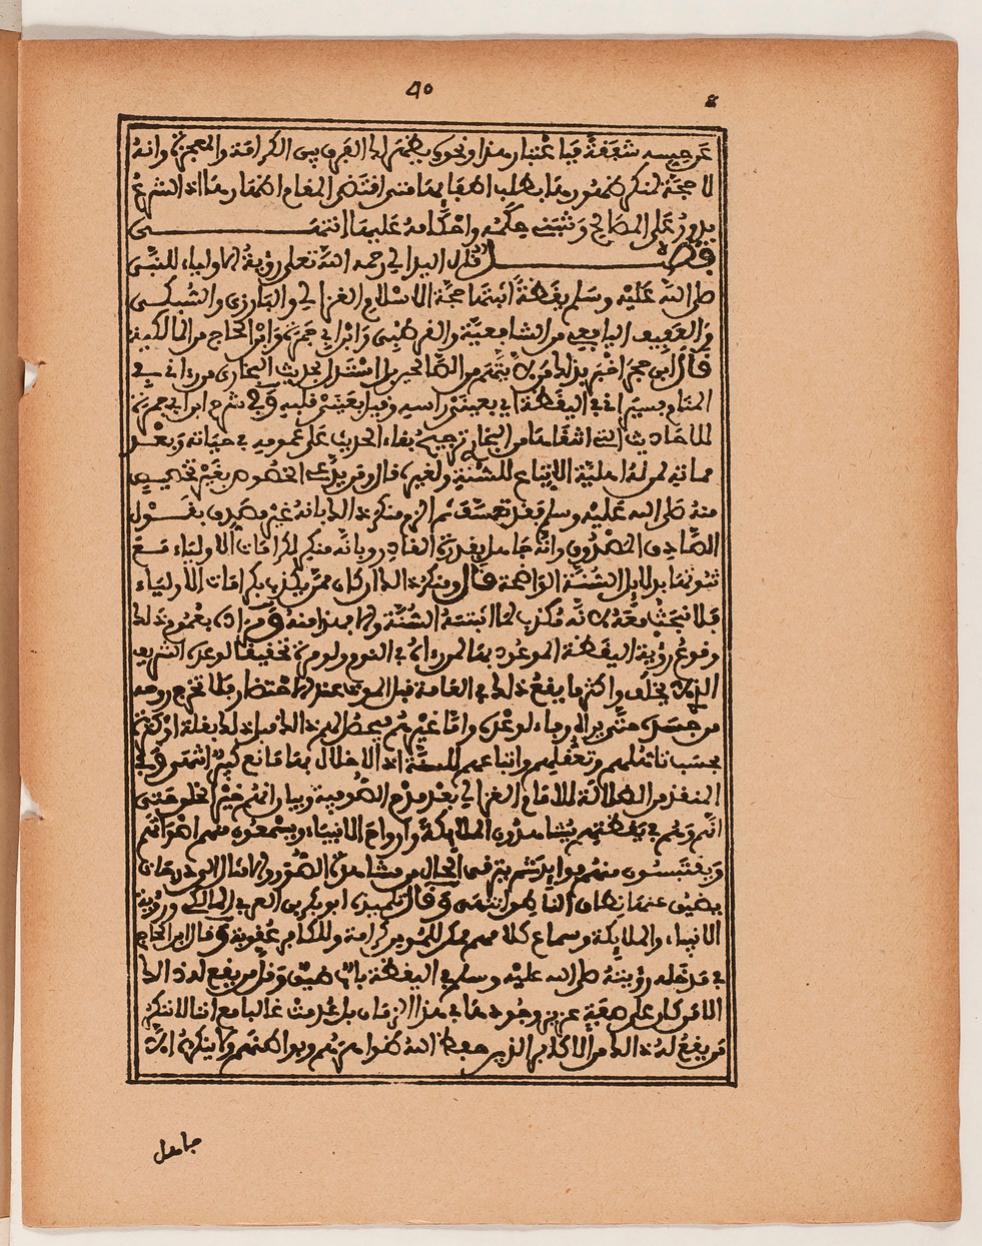 ٤٠
عن جيسه شفقة فباعتبار هذا ونحوه يظهر لك الفرق بين الكرامة والمعجزة وانه
لا حجة لمنكر ظهورها بطلب اخفائها متى اقتضى المقام اظهارها اذ الشرع
يدور على المصالح وتنبني حكمه واحكامه عليها انتهى
فصل قال اليدالي رحمه الله تعلى رؤية الاولياء للنبي
صلى الله عليه وسلم يقظة اثبتها حجة الاسلام الغزالي والبارزي والسبكي
والعفيف اليافعي من الشافعية والقرطبي وابن ابي جمرة وابن الحاج من المالكية
قال ابن حجر اخبر بذلك من لا يتهم من الصالحين بل استدل بحديث البخاري من رءاني في
المنام فسيراني في اليقظة اي بعيني راسه وقيل بعيني قلبه وفي شرح ابن ابي جمرة
للاحاديث التي انتقاها من البخاري ترجيح بقاء الحديث على عمومه في حياته وبعد
مماته لمن له اهلية الاتباع للسنة ولغيره قال ومن يدعي الخصوص بغير تخصيص
منه صلى الله عليه وسلم فقد تعسف ثم الزم منكر ذالك بانه غير مصدق بقول
الصادق المصدوق وانه جاهل بقدرة القادر وبانه منكر لكرامات الاولياء مع
ثبوتها بدلايل السنة الواضحة قال ومنكر ذالك ان كان ممن يكذب بكرامات الاولياء
فلا نبحث معه لانه مكذب لما اثبتته السنة والا فهذا منه ومراده بعموم ذلك
وقوع رؤية اليقظة الموعود بها لمن رءاه في النوم ولو مرة تحقيقا لوعده الشريف
الذي لا يخلف واكثر ما يقع ذلك في العامة قبل الموت عند الاحتضار فلا تخرج روحه
من جسده حتى يراه وفاء لوعده واما غيرهم فيحصل لهم ذالك قبل ذلك بقلة او كثرة
بحسب تاهلهم وتعلقهم واتباعهم للسنة اذ الاخلال بها مانع كبير انتهى وفي
المنقذ من الضلالة للامام الغزالي بعد مدح الصوفية وبيان انهم خير الخلق حتى
انهم وهم في يقظتهم يشاهدون الملايكة وارواح الانبياء ويسمعون منهم اصواتهم
ويقتبسون منهم فوايد ثم يترقى الحال من مشاهدة الصور والامثال الى درجات
يضيق عنها نطاق الناطق انتهى وقال تلميذه ابو بكر بن العربي المالكي ورؤية
الانبياء والملايكة وسماع كلامهم ممكن للمومن كرامة وللكافر عقوبة وقال ابن الحاج
في مدخله رؤيته صلى الله عليه وسلم في اليقظة باب ضيق وقل من يقع له ذالك
الا من كان على صفة عزيز وجودها في هذا الزمان بل عدمت غالبا مع اننا لا ننكر
من يقع له ذالك من الاكابر الذين حفظهم الله ظواهرهم وبواطنهم ولا ينكره الا
جاهل